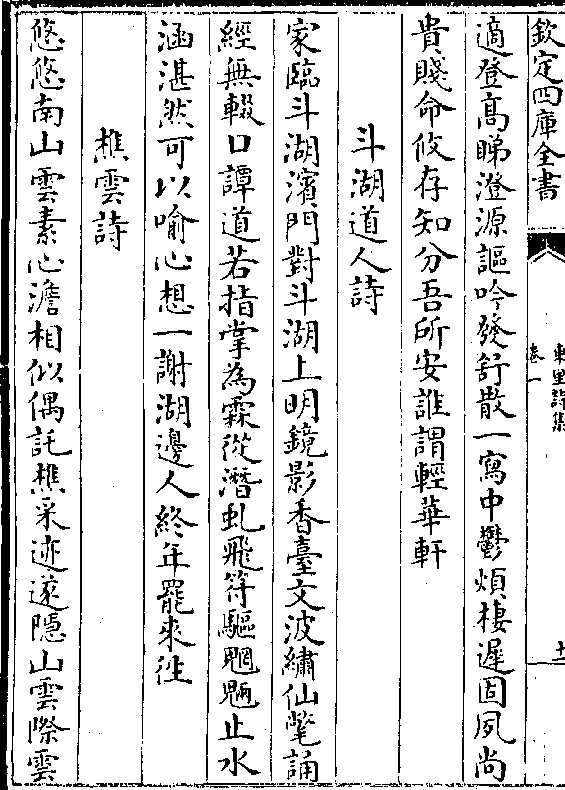 欽定四庫全書
東里詩集
卷一
十一
適登高睇澄源謳吟發舒散一寫中鬱煩棲遲固夙尚
貴賤命攸存知分吾所安誰謂輕華軒
斗湖道人詩
家臨斗湖濱門對斗湖上明鏡影香臺文波繡仙氅誦
經無輟口譚道若指掌為霖從潛虬飛符驅魍魎止水
涵湛然可以喻心想一謝湖邊人終年罷來往
樵雲詩
悠悠南山雲素心澹相似偶託樵采迹遂隱山雲際雲